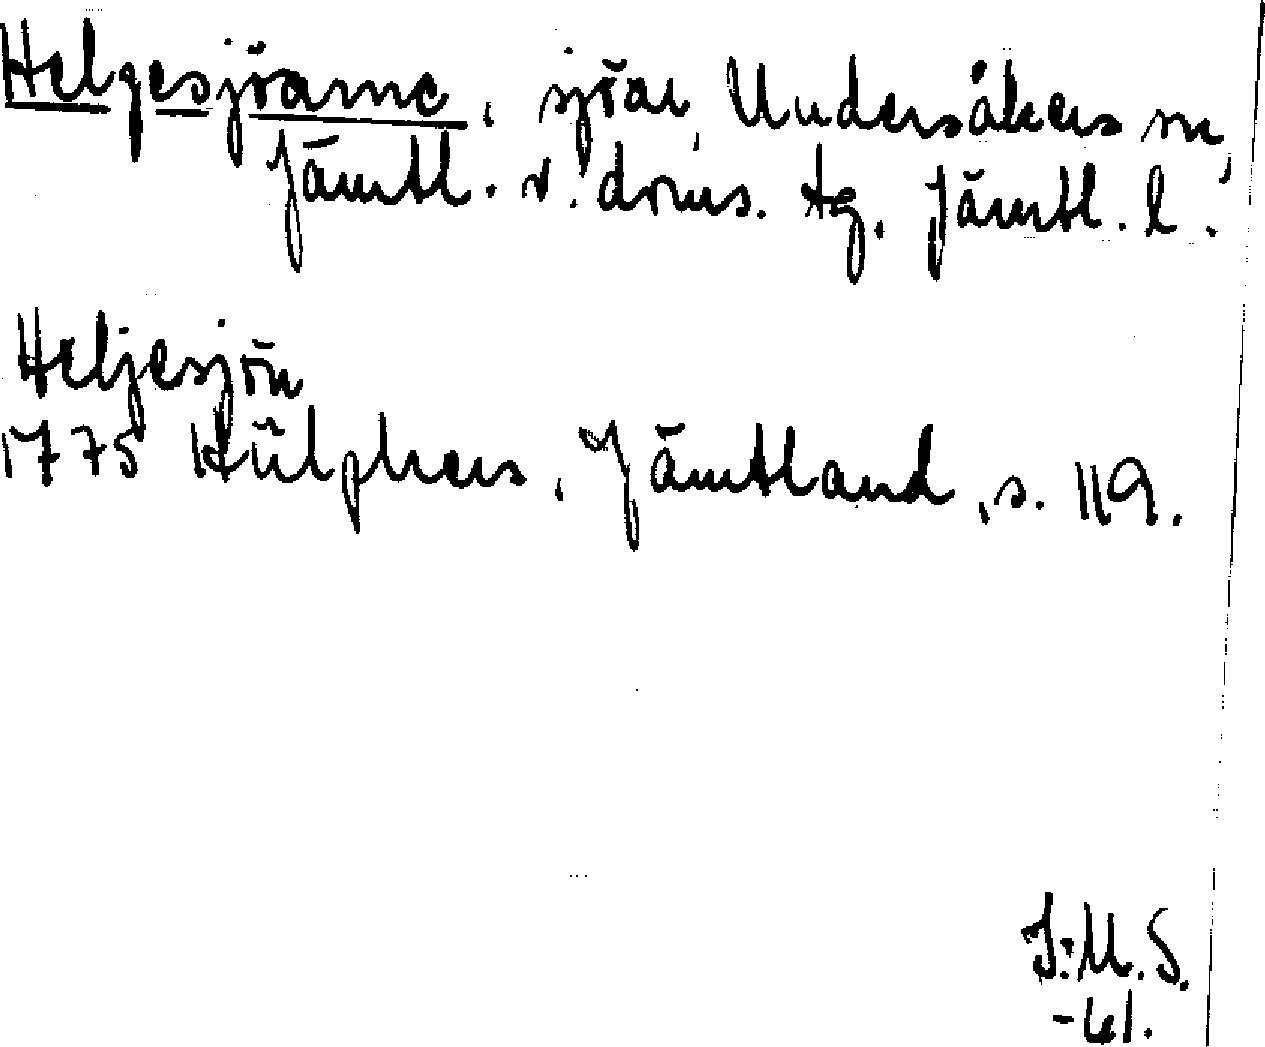 Helgesjöarne, sjöar, Undersåkers sn,
Jämtl. v. doms. tg, Jämtl. l.
Heljesjön
1775 Hülphers, Jämtland, s. 119.
I:M.S.
-61.